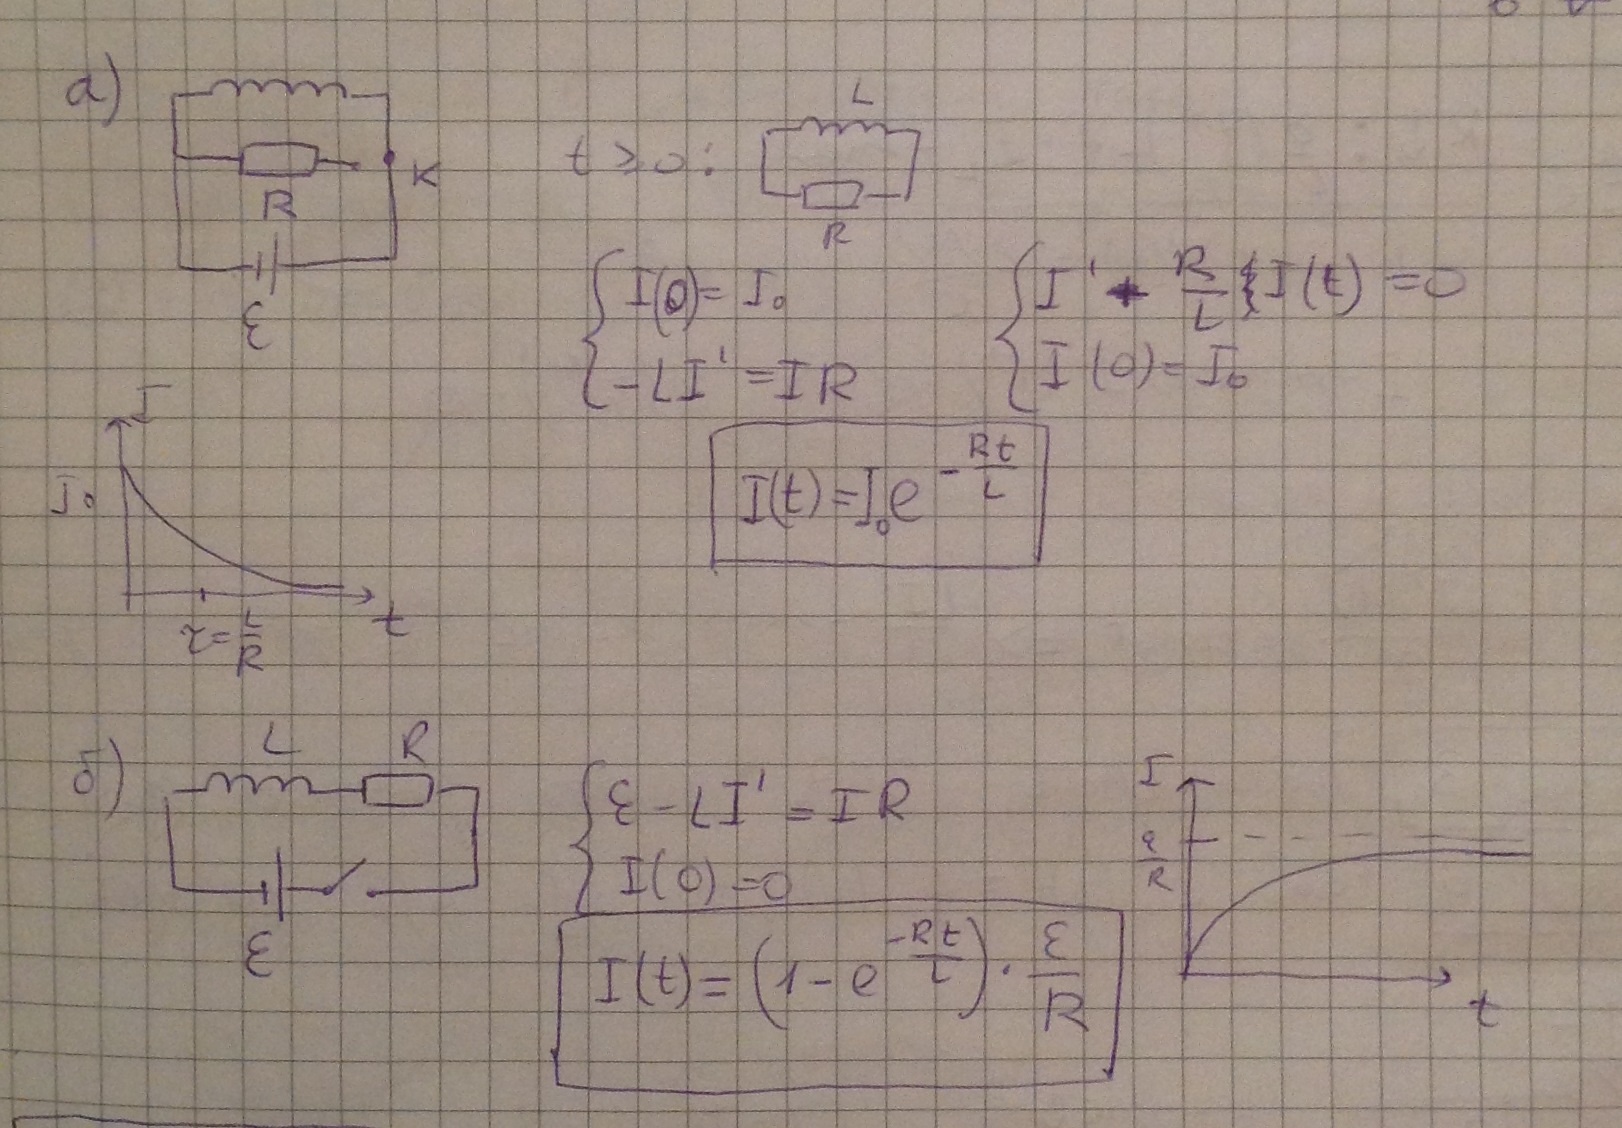 а)
K
R
ε
t ≥ 0 :
L
R
I(0) = I₀
-LI' = IR
I' + R/L I(t) = 0
I(0) = I₀
I(t) = I₀e^(-Rt/L)
I
I₀
τ = L/R
t
б)
L R
ε
ε - LI' = IR
I(0) = 0
I(t) = (1 - e^(-Rt/L)) · ε/R
I
ε/R
t